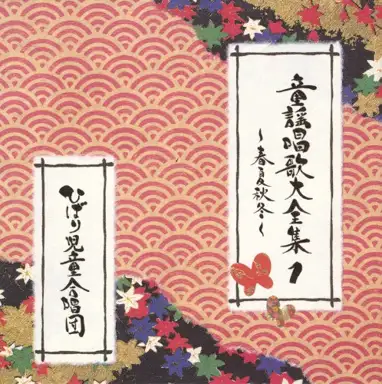 童謡唱歌大全集1
～春夏秋冬～
ひばり児童合唱団